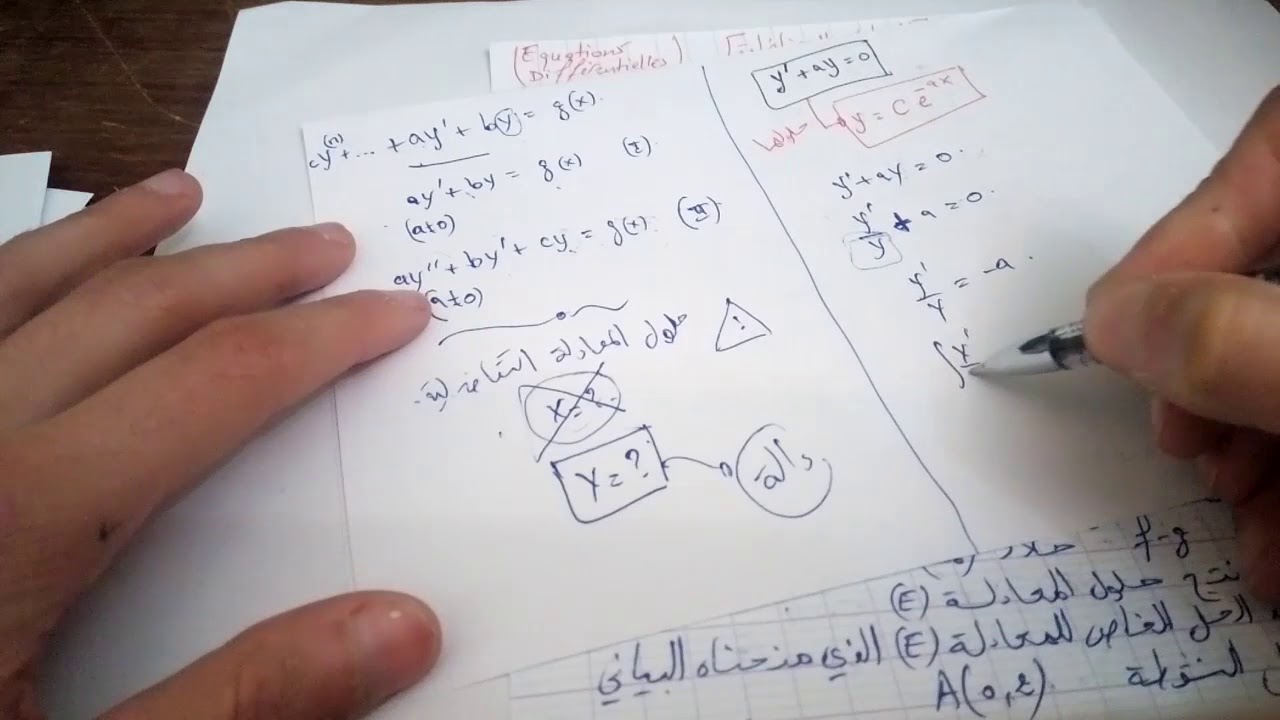 (Equations
Différentielles)
cy⁽ⁿ⁾+... + ay' + by = g(x).
ay' + by = g(x) (I).
(a≠0)
ay'' + by' + cy = g(x). (II)
(a≠0)
حلول المعادلة التفاضلية
!
x = ?
y = ?
دالة
y' + ay = 0
y = C e^-ax
حلولها
y' + ay = 0.
y'/y + a = 0.
y'/y = -a.
∫ y'
f-g
نتج حلول المعادلة (E)
الحل الخاص للمعادلة (E) الذي منحناه البياني
النقطة A(0,2).